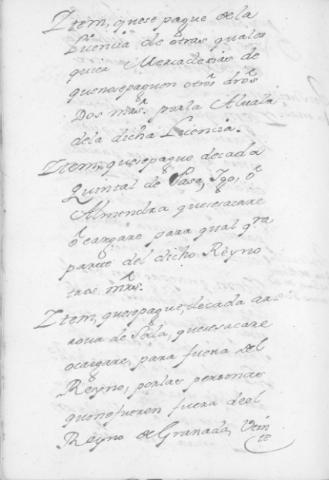 Ytem, quese pague dela
Licencia de otras quales
quier Mercaderias de
quenosepaguen otros dros
Dos mrs. porla Alvala
dela dicha Licencia.
Ytem, quesepague decada
Quintal de Pasa, Igo, o
Almendra quesesacare
o cargare para qual qra
parte del dicho Reyno
tres mrs.
Ytem, quesepague, decada ar
rova de Seda, quesesacare
ocargare, para fuera del
Reyno, porlas personas
quenofueren fuera deel
Reyno de Granada, Vein
te